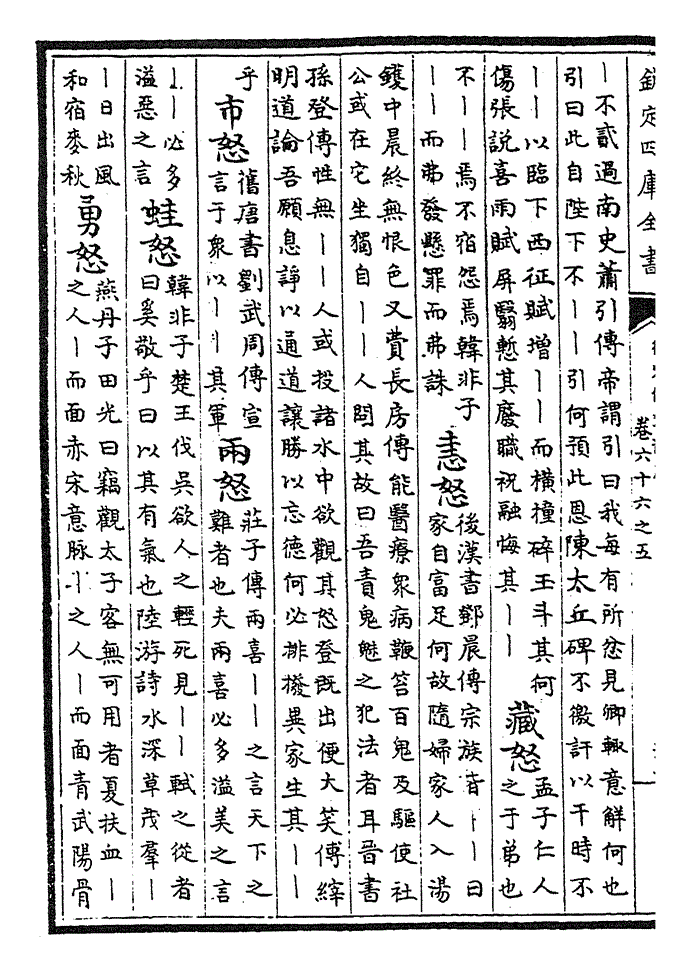 欽定四庫全書
卷六十六之五
丨不貳過南史蕭引傳帝謂引曰我每有所忿見卿輒意解何也
引曰此自陛下不丨丨引何預此恩陳太丘碑不徼訐以干時不
丨丨以臨下西征賦增丨丨而橫撞碎玉斗其何
傷張説喜雨賦屏翳慙其廢職祝融悔其丨丨
藏怒
孟子仁人
之于弟也
不丨丨焉不宿怨焉韓非子
丨丨而弗發懸罪而弗誅
恚怒
後漢書鄧晨傳宗族皆丨丨曰
家自富足何故隨婦家人入湯
鑊中晨終無恨色又費長房傳能醫療衆病鞭笞百鬼及驅使社
公或在它坐獨自丨丨人問其故曰吾責鬼魅之犯法者耳晉書
孫登傳性無丨丨人或投諸水中欲觀其怒登既出便大笑傅縡
明道論吾願息諍以通道讓勝以忘德何必排撥異家生其丨丨
乎
市怒
舊唐書劉武周傳宣
言于衆以丨丨其軍
兩怒
莊子傳兩喜丨丨之言天下之
難者也夫兩喜必多溢美之言
丨丨必多
溢惡之言
蛙怒
韓非子楚王伐吳欲人之輕死見丨丨軾之從者
曰奚敬乎曰以其有氣也陸游詩水深草茂羣丨
丨日出風
和宿麥秋
勇怒
燕丹子田光曰竊觀太子客無可用者夏扶血丨
之人丨而面赤宋意脉丨之人丨而面青武陽骨